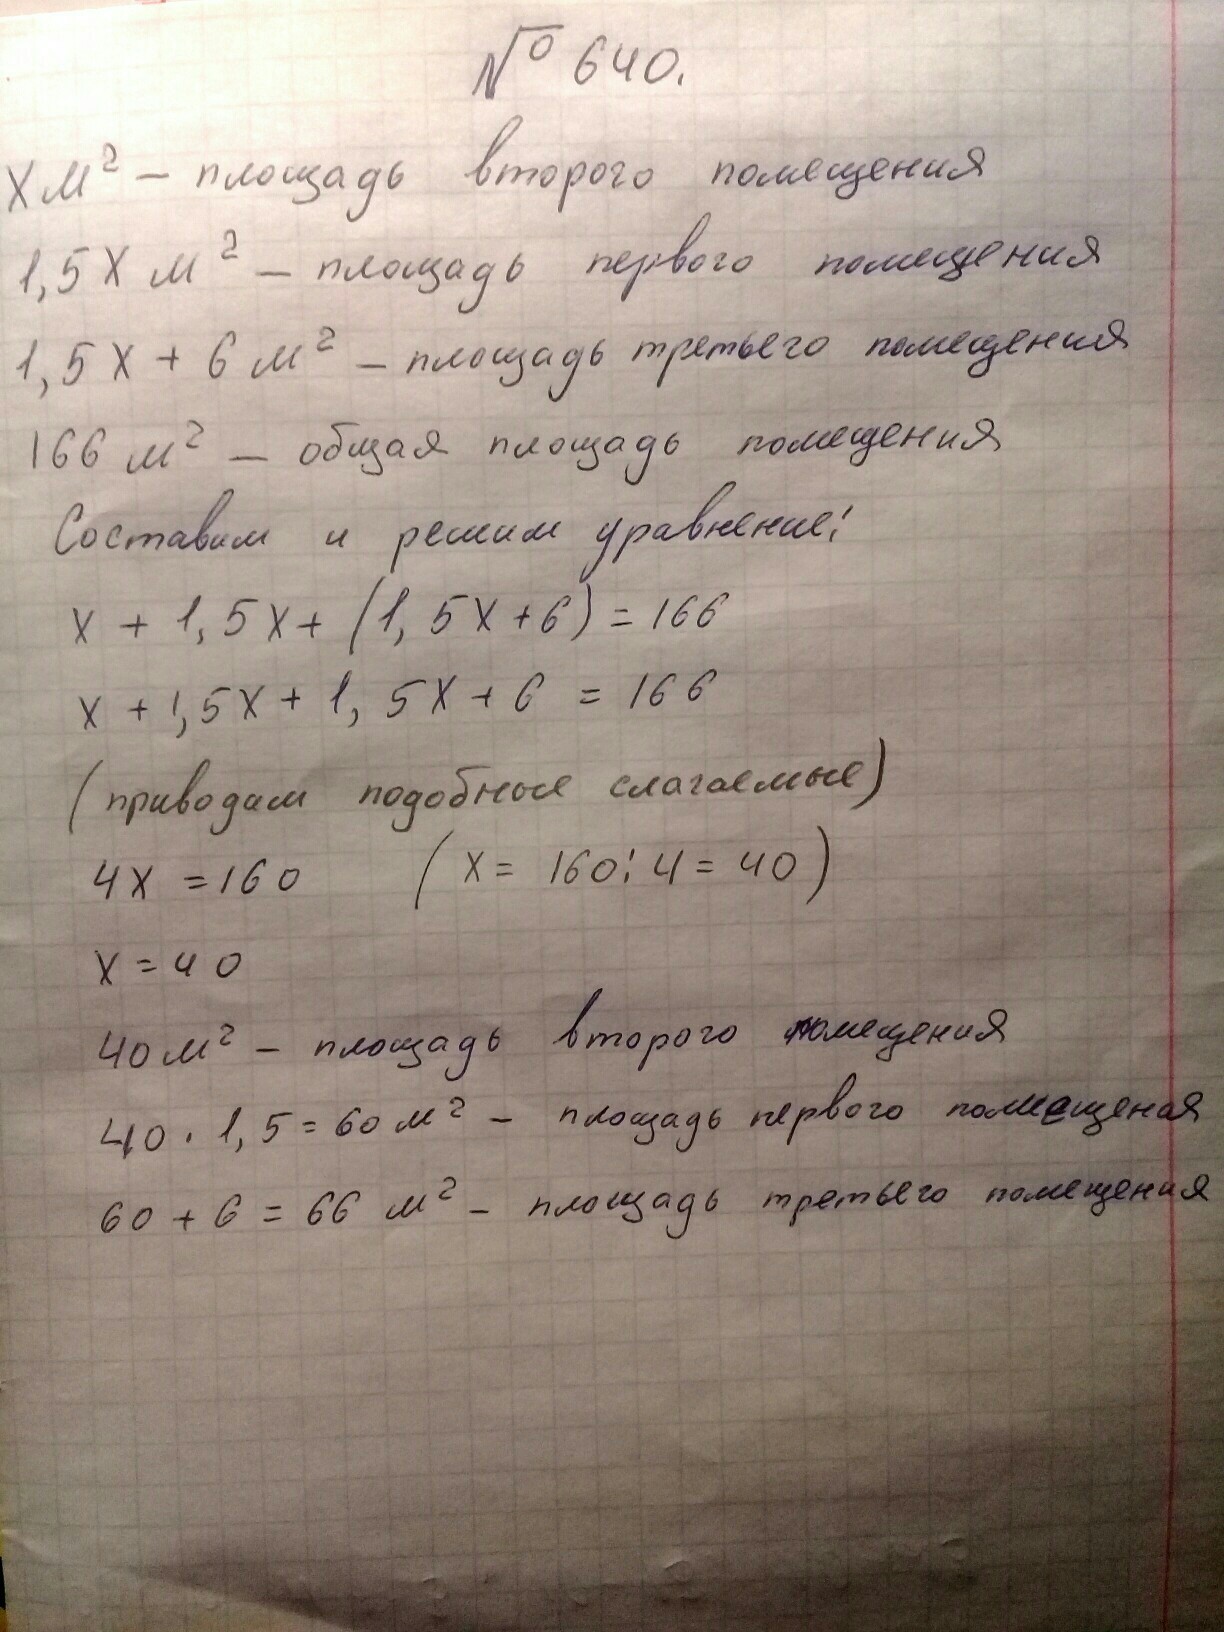 № 640.
x м² – площадь второго помещения
1,5x м² – площадь первого помещения
1,5x + 6 м² – площадь третьего помещения
166 м² – общая площадь помещения
Составим и решим уравнение:
x + 1,5x + (1,5x+6) = 166
x + 1,5x + 1,5x + 6 = 166
(приводам подобные слагаемые)
4x = 160 (x = 160:4 = 40)
x = 40
40 м² – площадь второго помещения
40 · 1,5 = 60 м² – площадь первого помещения
60 + 6 = 66 м² – площадь третьего помещения